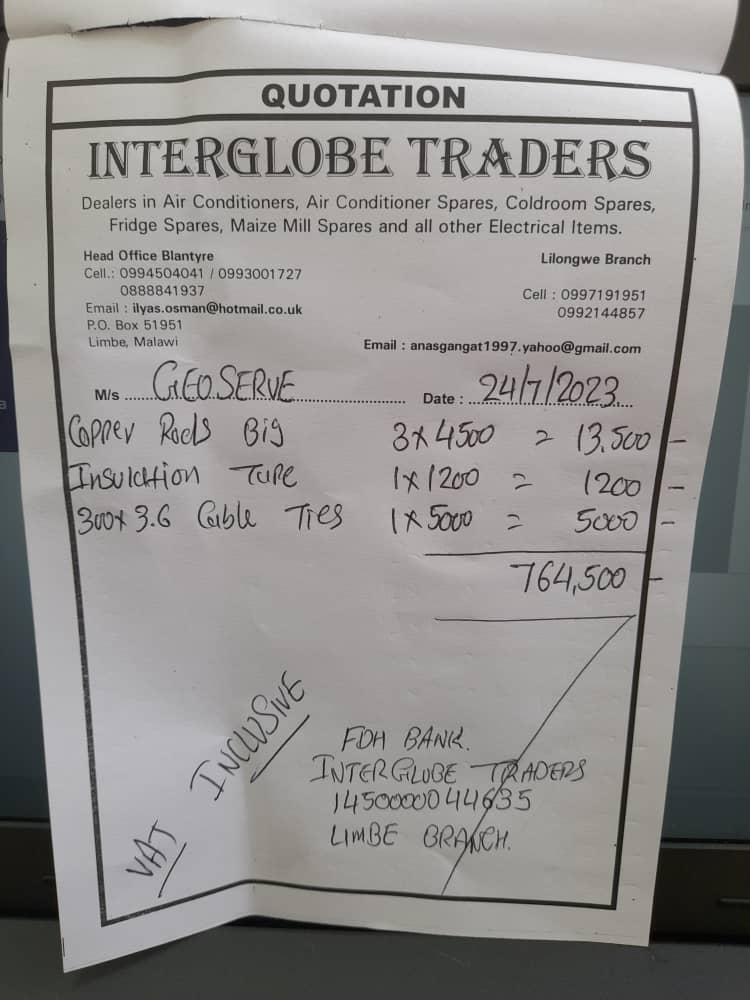 QUOTATION
INTERGLOBE TRADERS
Dealers in Air Conditioners, Air Conditioner Spares, Coldroom Spares,
Fridge Spares, Maize Mill Spares and all other Electrical Items.
Head Office Blantyre
Cell.: 0994504041 / 0993001727
0888841937
Email : ilyas.osman@hotmail.co.uk
P.O. Box 51951
Limbe, Malawi
Lilongwe Branch
Cell : 0997191951
0992144857
Email : anasgangat1997.yahoo@gmail.com
M/s ...... GEOSERVE ........................ Date : .. 24/7/2023 ..
Copper Rods Big 3 x 4500 = 13,500 -
Insulation Tape 1 x 1200 = 1200 -
300 x 3.6 Cable Ties 1 x 5000 = 5000 -
764,500 -
VAT INCLUSIVE
FDH BANK.
INTERGLOBE TRADERS
1450000044635
LIMBE BRANCH.